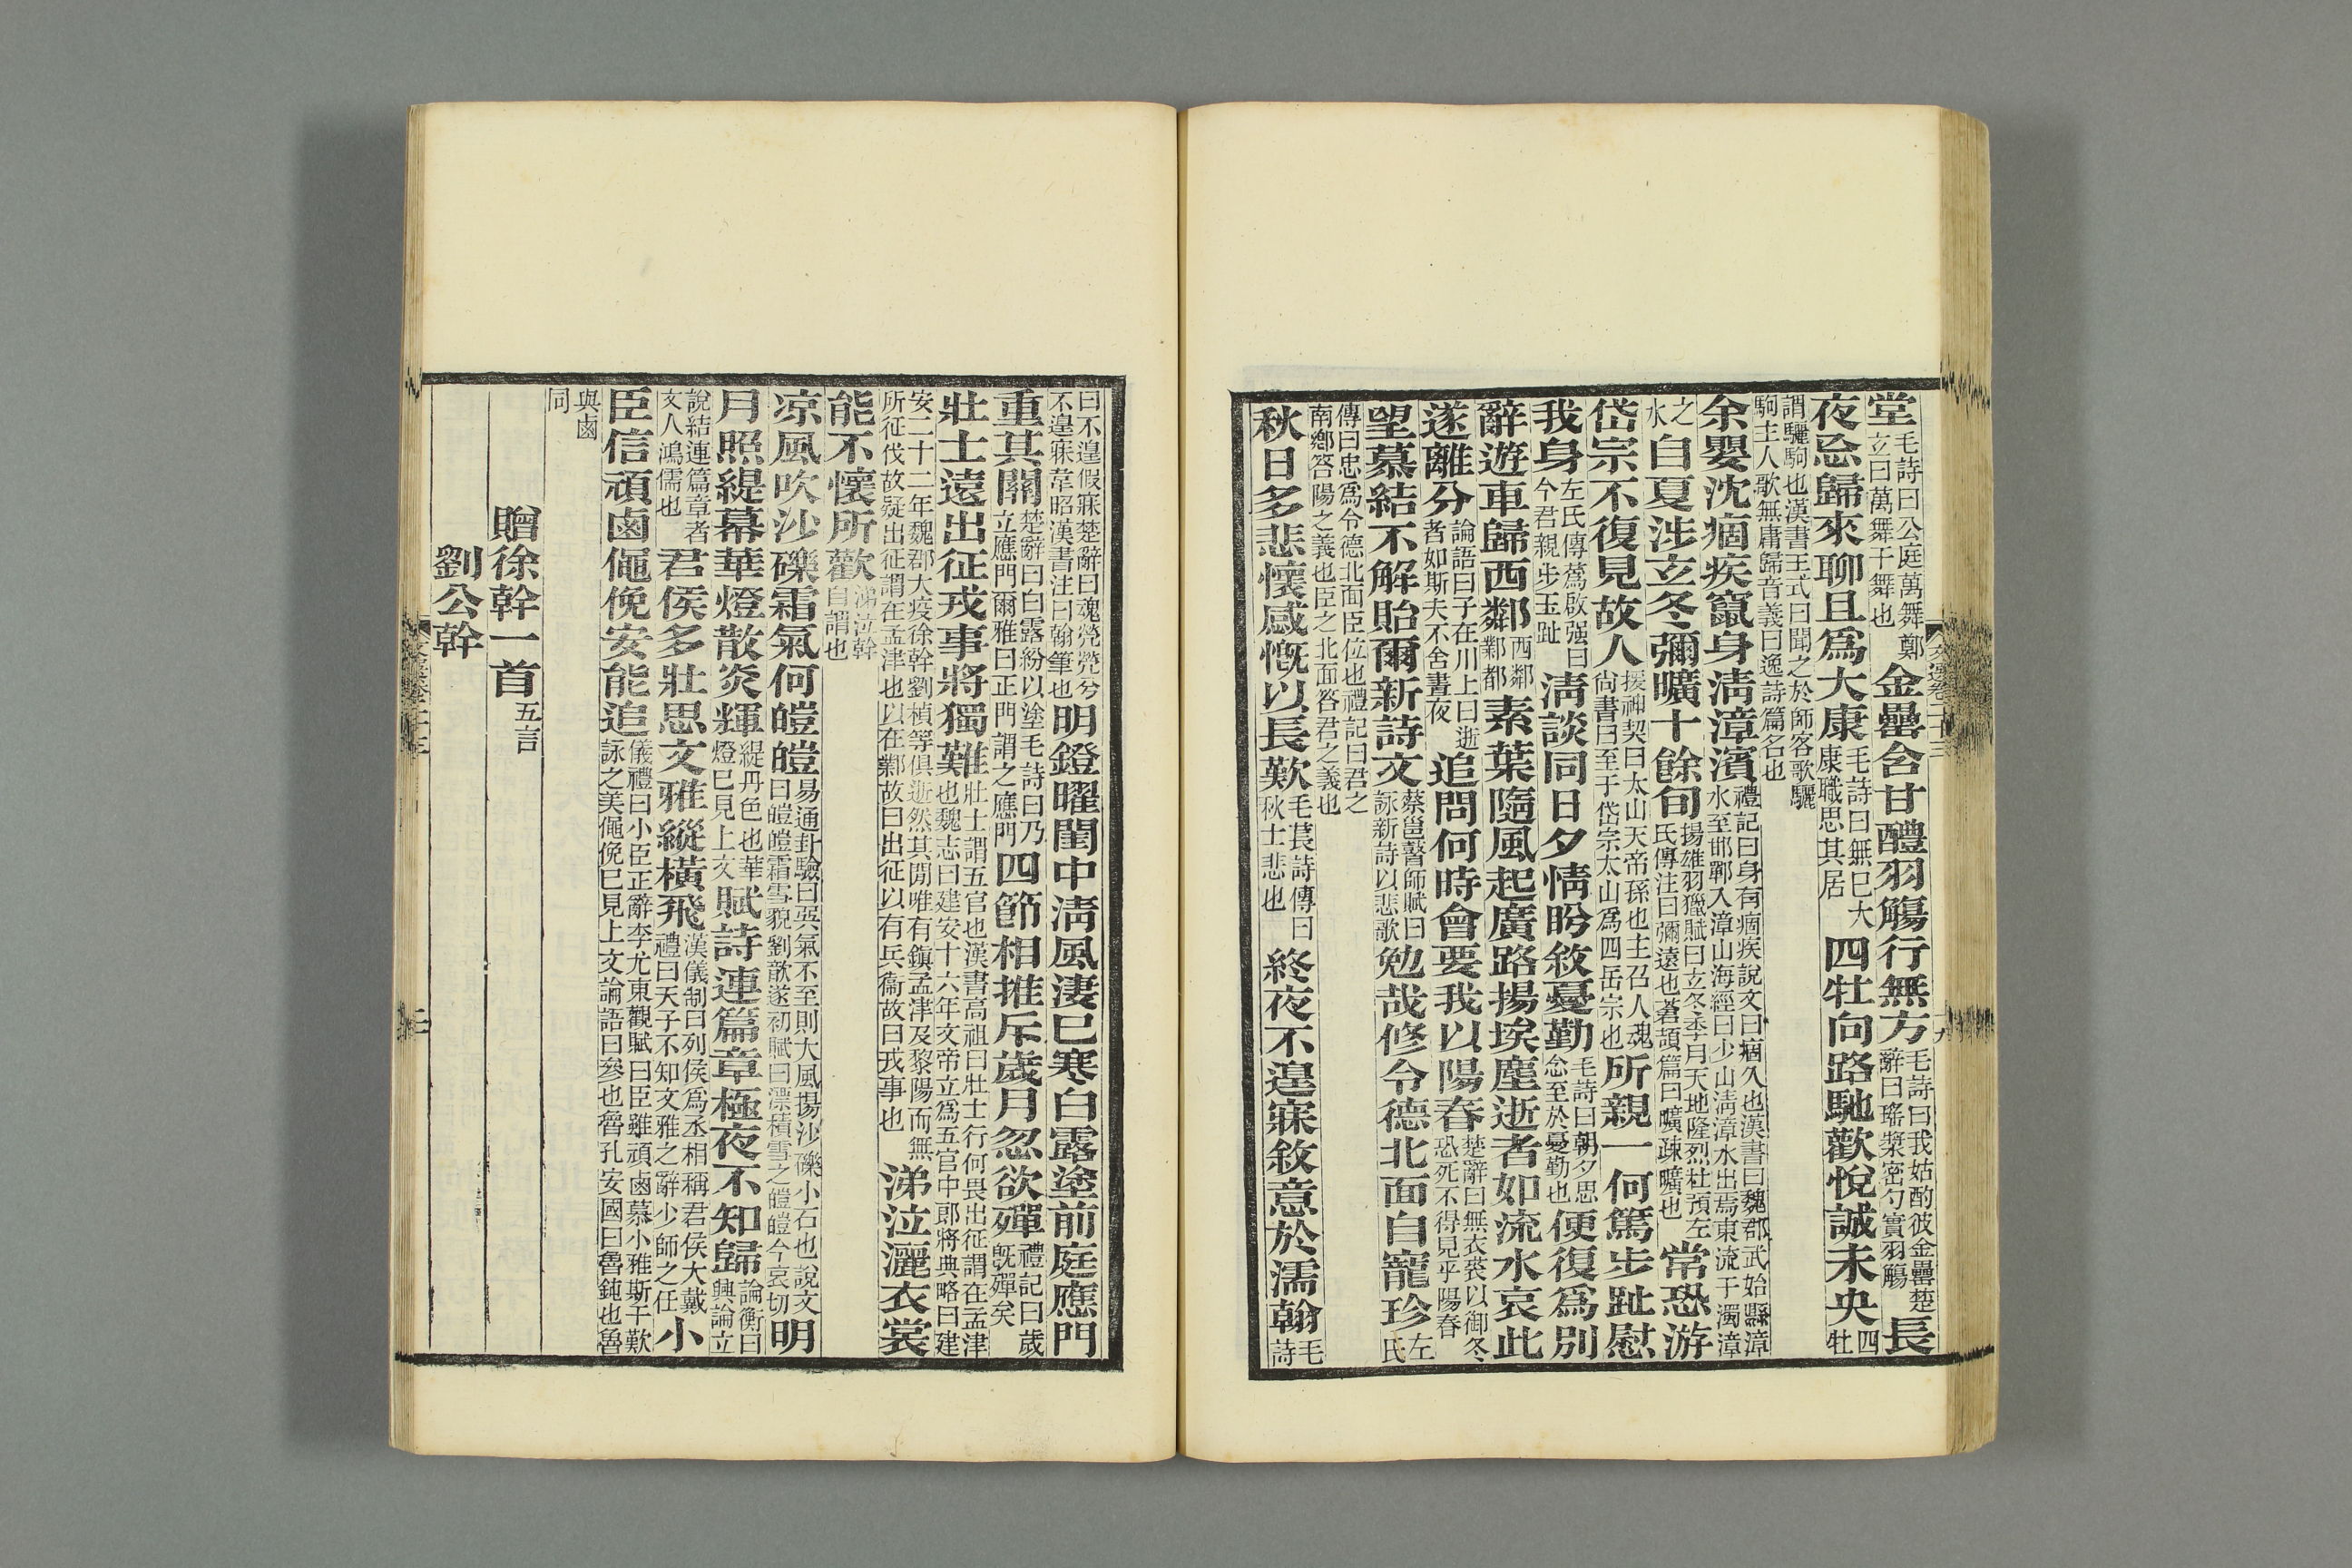 堂毛詩曰公庭萬舞鄭玄曰萬舞干舞也金罍含甘醴羽觴行無方毛詩曰我姑酌彼金罍楚辭曰瑤漿密勺實羽觴長
夜忘歸來聊且爲大康毛詩曰無已大康職思其居四牡向路馳歡悅誠未央四牡
謂驪駒也漢書王式曰聞之於師客歌驪駒主人歌無庸歸音義曰逸詩篇名也
余嬰沈痼疾竄身淸漳濱禮記曰身有痼疾說文曰痼久也漢書曰魏郡武始縣漳水至邯鄲入漳山海經曰少山淸漳水出焉東流于濁漳
之水自夏涉玄冬彌曠十餘旬揚雄羽獵賦曰玄冬季月天地隆烈杜預左氏傳注曰彌遠也蒼頡篇曰曠疎曠也常恐游
岱宗不復見故人援神契曰太山天帝孫也主召人魂尙書曰至于岱宗太山爲四岳宗也所親一何篤步趾慰
我身左氏傳薳啟强曰今君親步玉趾淸談同日夕情眄敘憂勤毛詩曰朝夕思念至於憂勤也便復爲別
辭遊車歸西鄰西鄰鄴都素葉隨風起廣路揚埃塵逝者如流水哀此
遂離分論語曰子在川上曰逝者如斯夫不舍晝夜追問何時會要我以陽春楚辭曰無衣裘以御冬恐死不得見乎陽春
望慕結不解貽爾新詩文蔡邕瞽師賦曰詠新詩以悲歌勉哉修令德北面自寵珍左氏
傳曰忠爲令德北面臣位也禮記曰君之南鄕答陽之義也臣之北面答君之義也
秋日多悲懷感慨以長歎毛萇詩傳曰秋士悲也終夜不遑寐敘意於濡翰毛詩
曰不遑假寐楚辭曰魂煢煢兮不遑寐韋昭漢書注曰翰筆也明鐙曜閨中淸風淒已寒白露塗前庭應門
重其關楚辭曰白露紛以塗毛詩曰乃立應門爾雅曰正門謂之應門四節相推斥歲月忽欲殫禮記曰歲旣殫矣
壯士遠出征戎事將獨難壯士謂五官也漢書高祖曰壯士行何畏出征謂在孟津也魏志曰建安十六年文帝立爲五官中郎將典略曰建
安二十二年魏郡大疫徐幹劉楨等俱逝然其閒唯有鎭孟津及黎陽而無所征伐故疑出征謂在孟津也以在鄴故曰出征以有兵衞故曰戎事也涕泣灑衣裳
能不懷所歡涕泣幹自謂也
凉風吹沙礫霜氣何皚皚易通卦驗曰巽氣不至則大風揚沙礫小石也說文曰皚皚霜雪貌劉歆遂初賦曰漂積雪之皚皚今哀切明
月照緹幕華燈散炎輝緹丹色也華燈已見上文賦詩連篇章極夜不知歸論衡曰興論立
說結連篇章者文人鴻儒也君侯多壯思文雅縱橫飛漢儀制曰列侯爲丞相稱君侯大戴禮曰天子不知文雅之辭少師之任小
臣信頑鹵僶俛安能追儀禮曰小臣正辭李尤東觀賦曰臣雖頑鹵慕小雅斯干歎詠之美僶俛已見上文論語曰參也魯孔安國曰魯鈍也魯
與鹵同
贈徐幹一首五言
劉公幹